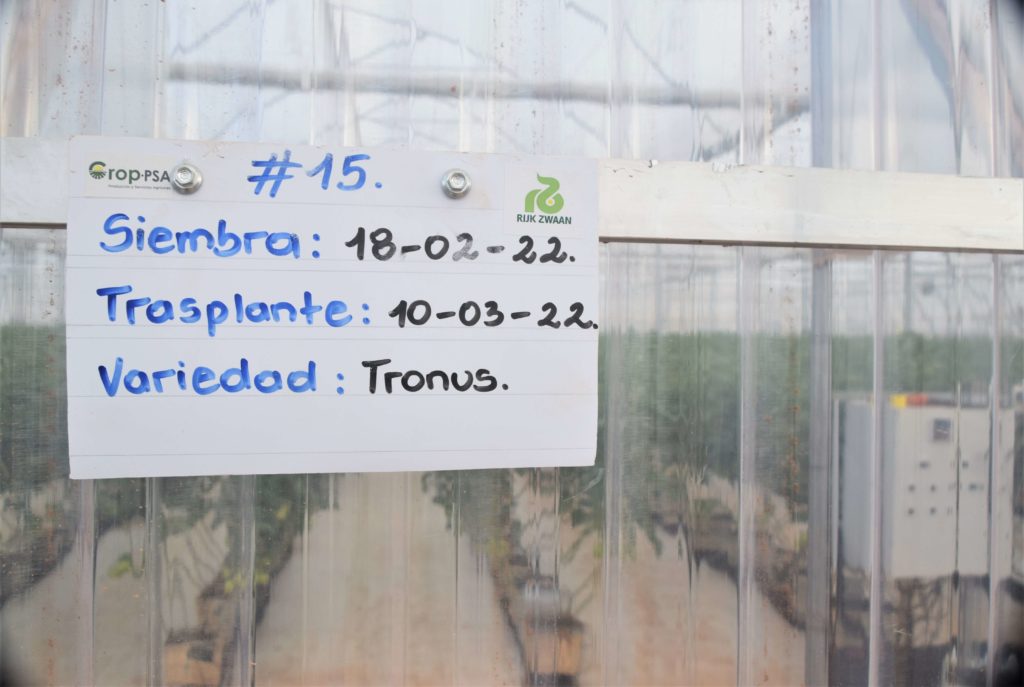 Crop-PSA
#15.
RIJK ZWAAN
Siembra: 18-02-22.
Trasplante: 10-03-22.
Variedad: Tronus.